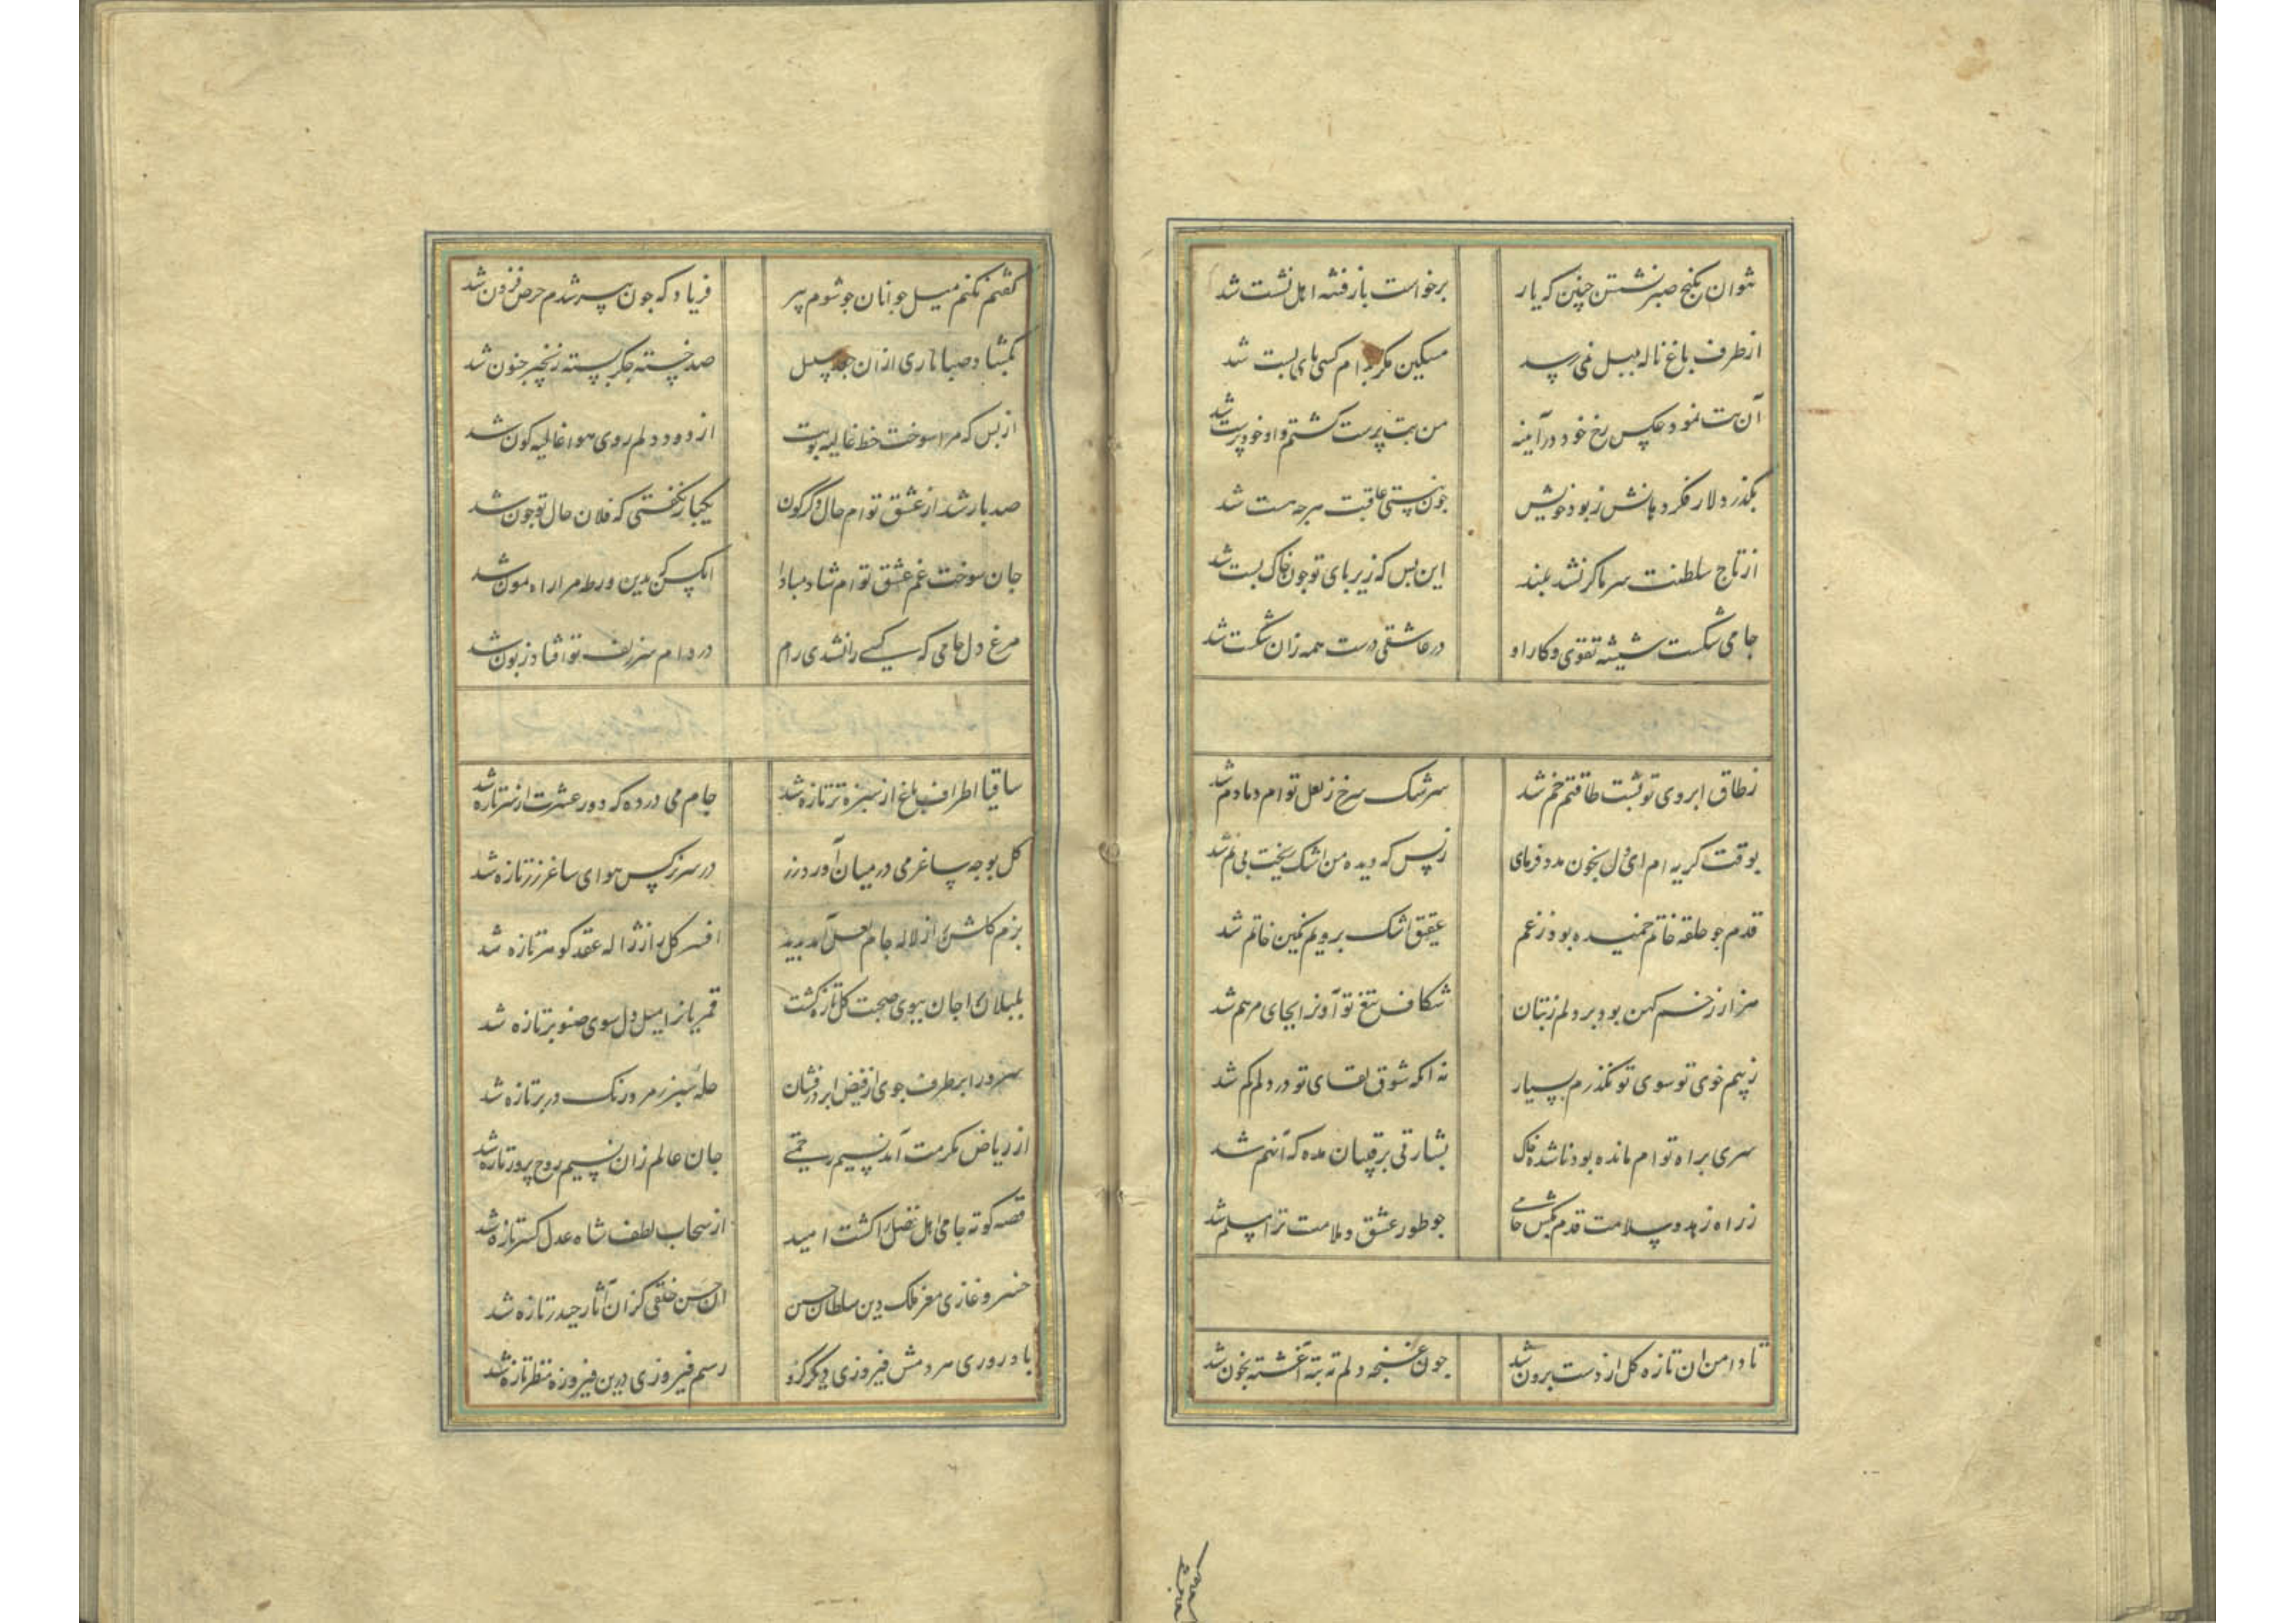 نتوان بکنج صبر نشستن چنین که یار
برخواست باز فتنه اهل نشست شد
از طرف باغ ناله بلبل نمی رسد
مسکین مکر بدام کسی پای بست شد
آن بت نمود عکس رخ خود در آینه
من بت پرست کشتم و او خود پرست شد
بکذر دلا ز فکر دهانش ز بود خویش
چون نیستی عاقبت هر چه هست شد
از تاج سلطنت سر ما کر نشد بلند
این بس که زیر پای تو چون خاک پست شد
جامی شکست شیشه تقوی و کار او
در عاشقی درست همه زان شکست شد
ز طاق ابروی تو پشت طاقتم خم شد
سرشک سرخ ز لعل توام دمادم شد
بوقت کریه ام ای دل بخون مدد فرمای
ز بس که دیده من اشک ریخت بی نم شد
قدم چو حلقه خاتم خمیده بود ز غم
عقیق اشک برویم نکین خاتم شد
هزار زخم کهن بود بر دلم ز بتان
شکاف تیغ تو آنرا بجای مرهم شد
ز بیم خوی تو سوی تو نکذرم بسیار
نه انکه شوق لقای تو در دلم کم شد
سری براه توام مانده بود نا شده خاک
بشارتی برقیبان مده که آنهم شد
ز راه زهد و سلامت قدم بکش جامی
چو طور عشق و ملامت ترا مسلم شد
تا دامن ان تازه کل از دست برون شد
چون غنچه دلم ته بته آغشته بخون شد
کفتم نکنم میل جوانان چو شوم پیر
فریاد که چون پیر شدم حرص فزون شد
بکشاد صبا تاری از ان جعد مسلسل
صد خسته جکر بسته زنجیر جنون شد
از بس که مرا سوخت خط غالیه بویت
از دود دلم روی هوا غالیه کون شد
صد بار شد از عشق توام حال دکرکون
یکبار نکفتی که فلان حال تو چون شد
جان سوخت غم عشق توام شاد مبادا
انکس که بدین ورطه مرا راه نمون شد
مرغ دل جامی که کسی را نشدی رام
در دام سر زلف تو افتاد زبون شد
ساقیا اطراف باغ از سبزه تر تازه شد
جام می در ده که دور عشرت از سر تازه شد
کل بوجه ساغر می در میان آورد زر
در سر نرکس هوای ساغر زر تازه شد
بزم کلشن را ز لاله جام لعل آمد پدید
افسر کل را ز ژاله عقد کوهر تازه شد
بلبلان را جان ببوی صحبت کل تازه کشت
قمریانرا میل دل سوی صنوبر تازه شد
سرو را بر طرف جوی از فیض ابر درفشان
حله سبز زمرد رنک در بر تازه شد
از ریاض مکرمت آمد نسیم رحمتی
جان عالم زان نسیم روح پرور تازه شد
قصه کوته جامی اهل فضل را کشت امید
از سحاب لطف شاه عدل کستر تازه شد
خسرو غازی معز ملک دین سلطان حسین
ان حسن خلقی کزان آثار حیدر تازه شد
باد روزی هر دمش فیروزی دیکر کزو
رسم فیروزی درین فیروزه منظر تازه شد